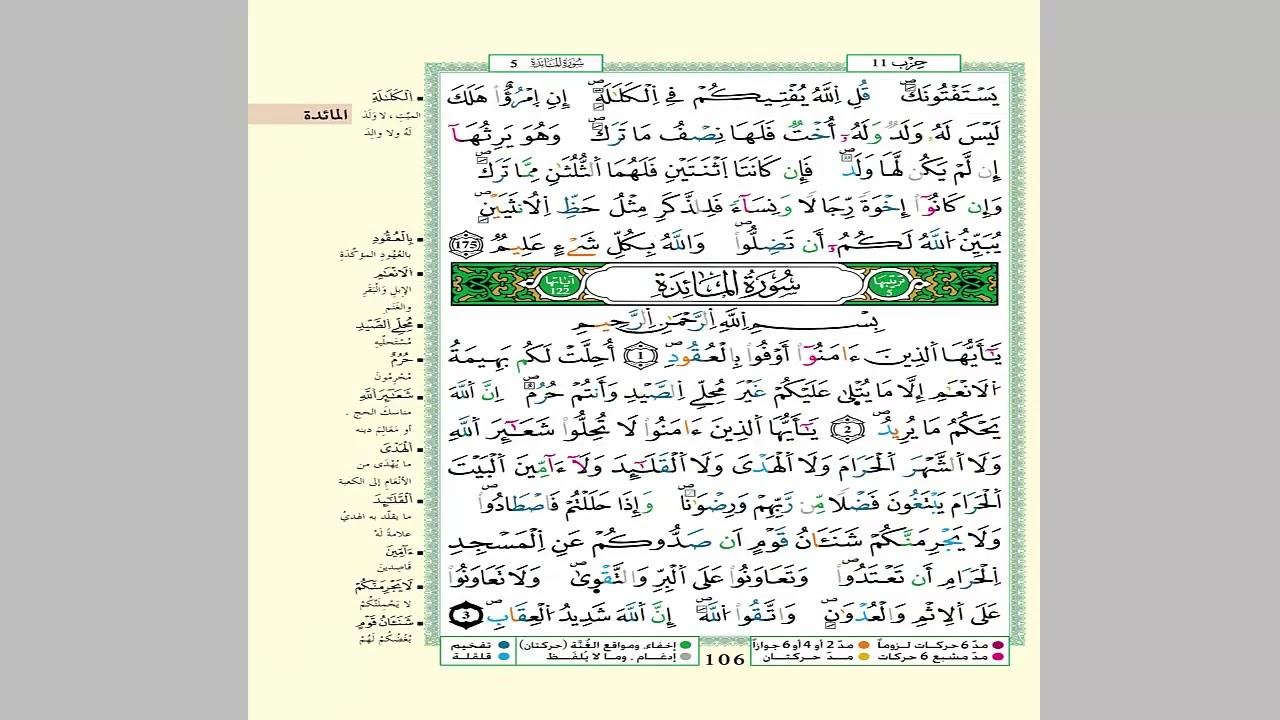 حِزْب 11
سُورَةُ المَائدَة 5
يَسْتَفْتُونَكَ قُلِ اِللَّهُ يُفْتِيكُمْ فِي اِلْكَلَٰلَةِ إِنِ اِمْرُؤٌاْ هَلَكَ
لَيْسَ لَهُۥ وَلَدٌ وَلَهُۥٓ أُخْتٌ فَلَهَا نِصْفُ مَا تَرَكَ وَهُوَ يَرِثُهَآ
إِن لَّمْ يَكُن لَّهَا وَلَدٌ فَإِن كَانَتَا اَثْنَتَيْنِ فَلَهُمَا اَلثُّلُثَٰنِ مِمَّا تَرَكَ
وَإِن كَانُوٓاْ إِخْوَةً رِّجَالًا وَنِسَآءً فَلِلذَّكَرِ مِثْلُ حَظِّ اِلُانثَيَيْنِ
يُبَيِّنُ اُللَّهُ لَكُمُۥٓ أَن تَضِلُّواْ وَاللَّهُ بِكُلِّ شَےْءٍ عَلِيمٌ 175
ترتيبها 5
سُورَةُ المَائدَة
آياتها 122
بِسْمِ اِللَّهِ اِلرَّحْمَٰنِ اِلرَّحِيمِ
يَٰٓأَيُّهَا اَلذِينَ ءَامَنُوٓاْ أَوْفُواْ بِالْعُقُودِ 1 أُحِلَّتْ لَكُم بَهِيمَةُ
اُلَانْعَٰمِ إِلَّا مَا يُتْلَىٰ عَلَيْكُمْ غَيْرَ مُحِلِّے اِلصَّيْدِ وَأَنتُمْ حُرُمٌ إِنَّ اَللَّهَ
يَحْكُمُ مَا يُرِيدُ 2 يَٰٓأَيُّهَا اَلذِينَ ءَامَنُواْ لَا تُحِلُّواْ شَعَٰٓئِرَ اَللَّهِ
وَلَا اَلشَّهْرَ اَلْحَرَامَ وَلَا اَلْهَدْىَ وَلَا اَلْقَلَٰٓئِدَ وَلَآ ءَآمِّينَ اَلْبَيْتَ
اَلْحَرَامَ يَبْتَغُونَ فَضْلًا مِّن رَّبِّهِمْ وَرِضْوَٰنًا وَإِذَا حَلَلْتُمْ فَاصْطَادُواْ
وَلَا يَجْرِمَنَّكُمْ شَنَـَٔانُ قَوْمٍ اَن صَدُّوكُمْ عَنِ اِلْمَسْجِدِ
اِلْحَرَامِ أَن تَعْتَدُواْ وَتَعَاوَنُواْ عَلَى اَلْبِرِّ وَالتَّقْوَىٰ وَلَا تَعَاوَنُواْ
عَلَى اَلِاثْمِ وَالْعُدْوَٰنِ وَاتَّقُواْ اُللَّهَ إِنَّ اَللَّهَ شَدِيدُ اُلْعِقَابِ 3
اِلْكَلَٰلَةِ
الميّتِ، لا وَلَدَ
لَهُ ولا والِدَ
المائدة
بِالْعُقُودِ
بالعُهُودِ المؤكّدَةِ
اُلَانْعَٰمِ
الإبِلِ وَالْبَقَرِ
والغَنَمِ
مُحِلِّے اِلصَّيْدِ
مُسْتَحلّيهِ
حُرُمٌ
مُحْرِمُونَ
شَعَٰٓئِرَ اَللَّهِ
مناسكَ الحج .
أو مَعَالِمَ دينه
اَلْهَدْىَ
ما يُهْدَى من
الأنْعَامِ إلى الكعبة
اَلْقَلَٰٓئِدَ
ما يقلّد به الهديُ
علامةً لَهُ
ءَآمِّينَ
قاصِدِينَ
لَا يَجْرِمَنَّكُمْ
لا يَحْمِلَنَّكُمْ
شَنَـَٔانُ قَوْمٍ
بُغْضُكُمْ لَهُمْ
مدّ 6 حركات لـزوماً
مدّ 2 أو 4 أو 6 جوازاً
مدّ مشبع 6 حركات
مدّ حركتان
106
إخفاء، ومواقع الغُنَّة (حركتان)
إدغام ، وما لا يُلفَظ
تفخيم
قلقلة